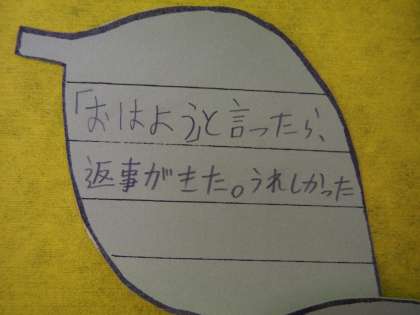 「おはよう」と言ったら、
返事がきた。うれしかった